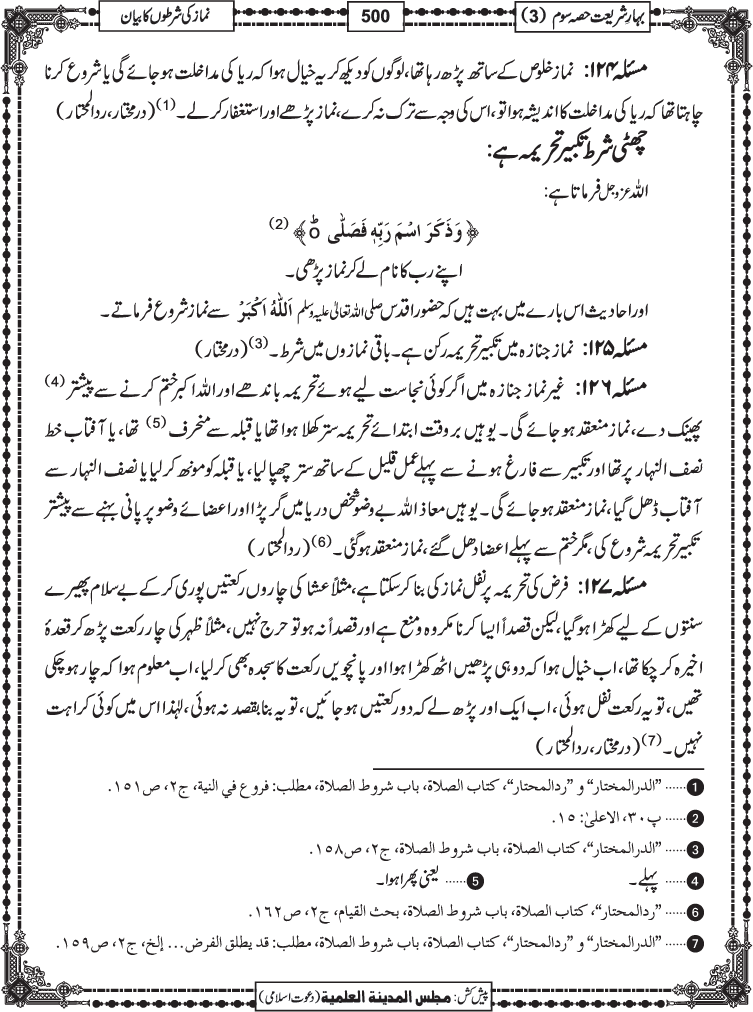 بہار شریعت حصہ سوم (3)
500
نماز کی شرطوں کا بیان
مسئلہ ۱۲۴: نماز خلوص کے ساتھ پڑھ رہا تھا، لوگوں کو دیکھ کر یہ خیال ہوا کہ ریا کی مداخلت ہو جائے گی یا شروع کرنا
چاہتا تھا کہ ریا کی مداخلت کا اندیشہ ہوا تو، اس کی وجہ سے ترک نہ کرے، نماز پڑھے اور استغفار کر لے۔(1) (درمختار، ردالمحتار)
چھٹی شرط تکبیر تحریمہ ہے:
اللہ عزوجل فرماتا ہے:
﴿ وَذَكَرَ اسْمَ رَبِّهٖ فَصَلّٰى ۝ؕ ﴾ (2)
اپنے رب کا نام لے کر نماز پڑھی۔
اور احادیث اس بارے میں بہت ہیں کہ حضور اقدس صلی اللہ تعالیٰ علیہ وسلم اَللّٰهُ اَكْبَرْ سے نماز شروع فرماتے۔
مسئلہ ۱۲۵: نماز جنازہ میں تکبیر تحریمہ رکن ہے۔ باقی نمازوں میں شرط۔(3) (درمختار)
مسئلہ ۱۲۶: غیر نماز جنازہ میں اگر کوئی نجاست لیے ہوئے تحریمہ باندھے اور اللہ اکبر ختم کرنے سے پیشتر (4)
پھینک دے، نماز منعقد ہو جائے گی۔ یوہیں بروقت ابتدائے تحریمہ ستر کھلا ہوا تھا یا قبلہ سے منحرف (5) تھا، یا آفتاب خط
نصف النہار پر تھا اور تکبیر سے فارغ ہونے سے پہلے عمل قلیل کے ساتھ ستر چھپا لیا، یا قبلہ کو مونھ کر لیا یا نصف النہار سے
آفتاب ڈھل گیا، نماز منعقد ہو جائے گی۔ یوہیں معاذ اللہ بے وضو شخص دریا میں گر پڑا اور اعضائے وضو پر پانی بہنے سے پیشتر
تکبیر تحریمہ شروع کی، مگر ختم سے پہلے اعضا دھل گئے، نماز منعقد ہوگئی۔(6) (ردالمحتار)
مسئلہ ۱۲۷: فرض کی تحریمہ پر نفل نماز کی بنا کر سکتا ہے، مثلاً عشا کی چاروں رکعتیں پوری کر کے بے سلام پھیرے
سنتوں کے لیے کھڑا ہو گیا، لیکن قصداً ایسا کرنا مکروہ و منع ہے اور قصداً نہ ہو تو حرج نہیں، مثلاً ظہر کی چار رکعت پڑھ کر قعدۂ
اخیرہ کر چکا تھا، اب خیال ہوا کہ دو ہی پڑھیں اٹھ کھڑا ہوا اور پانچویں رکعت کا سجدہ بھی کر لیا، اب معلوم ہوا کہ چار ہو چکی
تھیں، تو یہ رکعت نفل ہوئی، اب ایک اور پڑھ لے کہ دو رکعتیں ہو جائیں، تو یہ بنا بقصد نہ ہوئی، لہٰذا اس میں کوئی کراہت
نہیں۔(7) (درمختار، ردالمحتار)
1 ...... "الدرالمختار" و "ردالمحتار"، كتاب الصلاة، باب شروط الصلاة، مطلب: فروع في النية، ج۲، ص۱۵۱.
2 ...... پ۳۰، الاعلیٰ: ۱۵.
3 ...... "الدرالمختار"، كتاب الصلاة، باب شروط الصلاة، ج۲، ص۱۵۸.
4 ...... پہلے۔ 5 ...... یعنی پھرا ہوا۔
6 ...... "ردالمحتار"، كتاب الصلاة، باب شروط الصلاة، بحث القيام، ج۲، ص۱۶۲.
7 ...... "الدرالمختار" و "ردالمحتار"، كتاب الصلاة، باب شروط الصلاة، مطلب: قد يطلق الفرض... إلخ، ج۲، ص۱۵۹.
پیش کش: مجلس المدینۃ العلمیۃ (دعوت اسلامی)